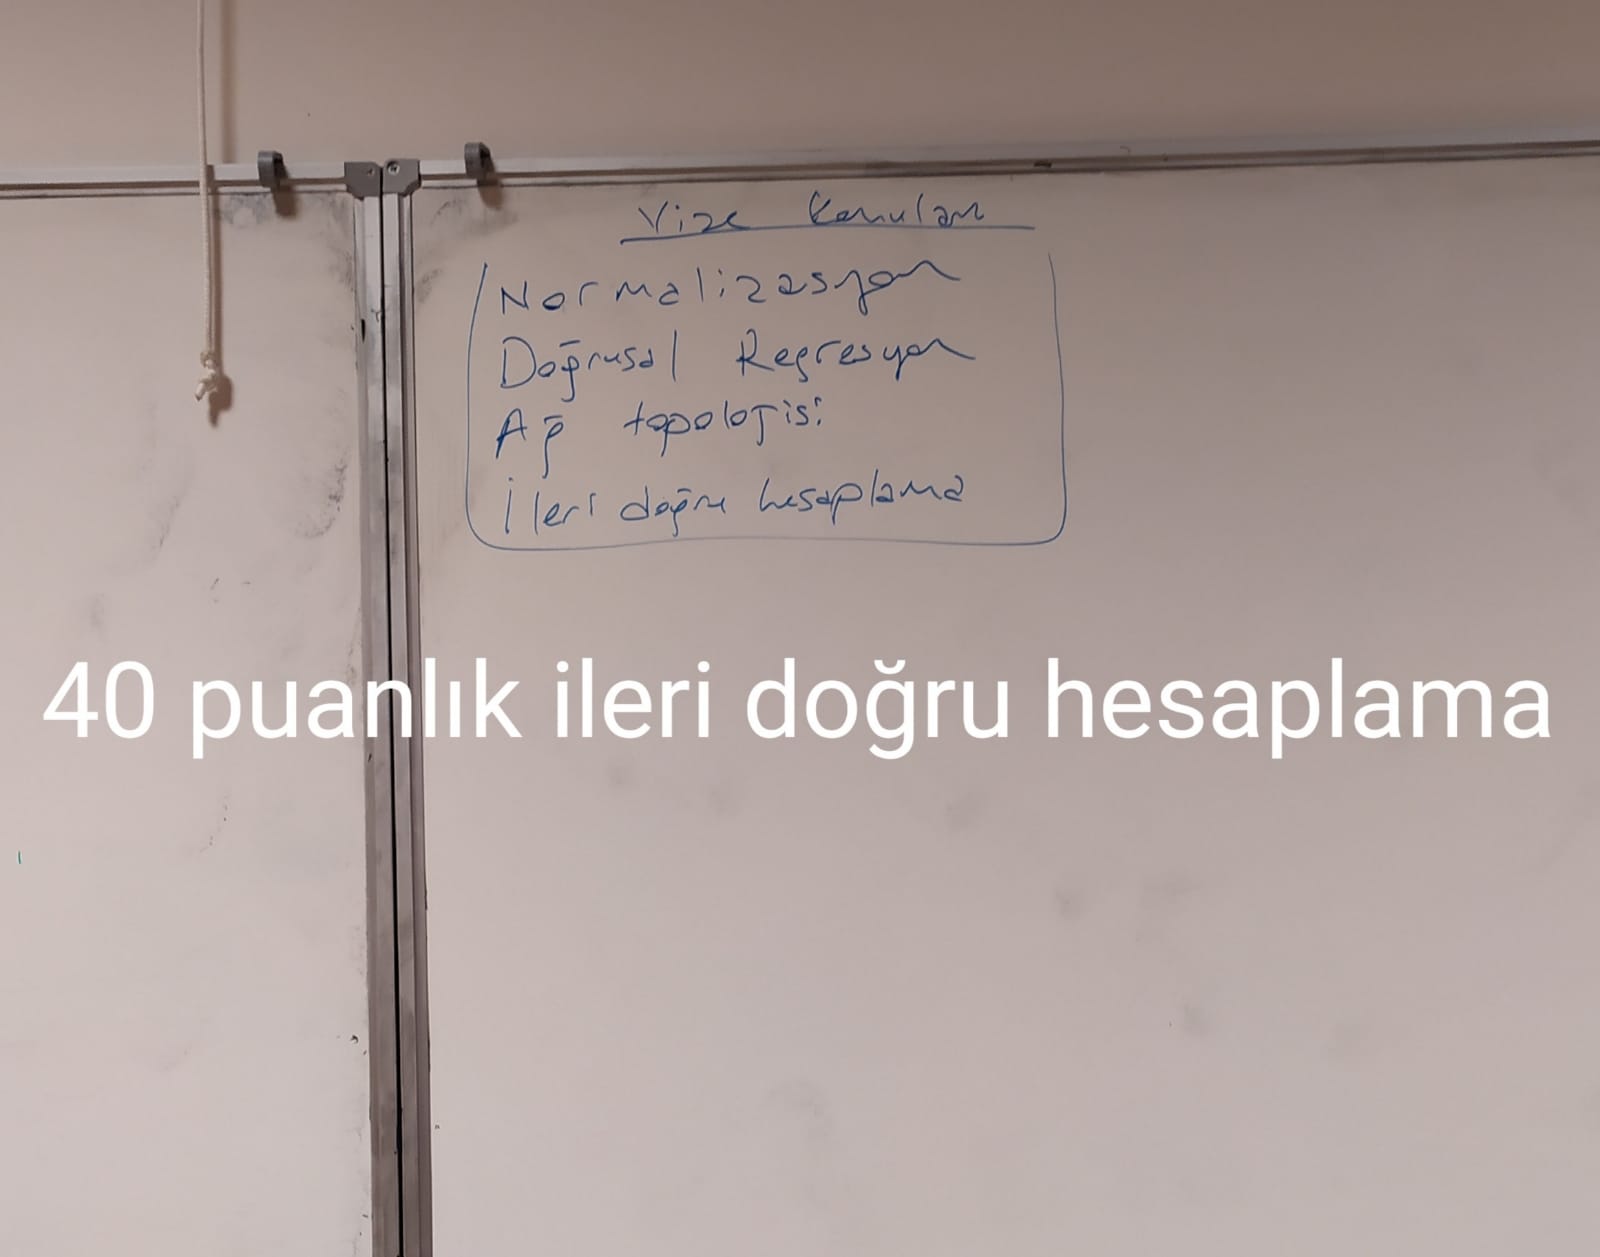 Vize Konuları
Normalizasyon
Doğrusal Regresyon
Ağ topolojisi
İleri doğru hesaplama
40 puanlık ileri doğru hesaplama